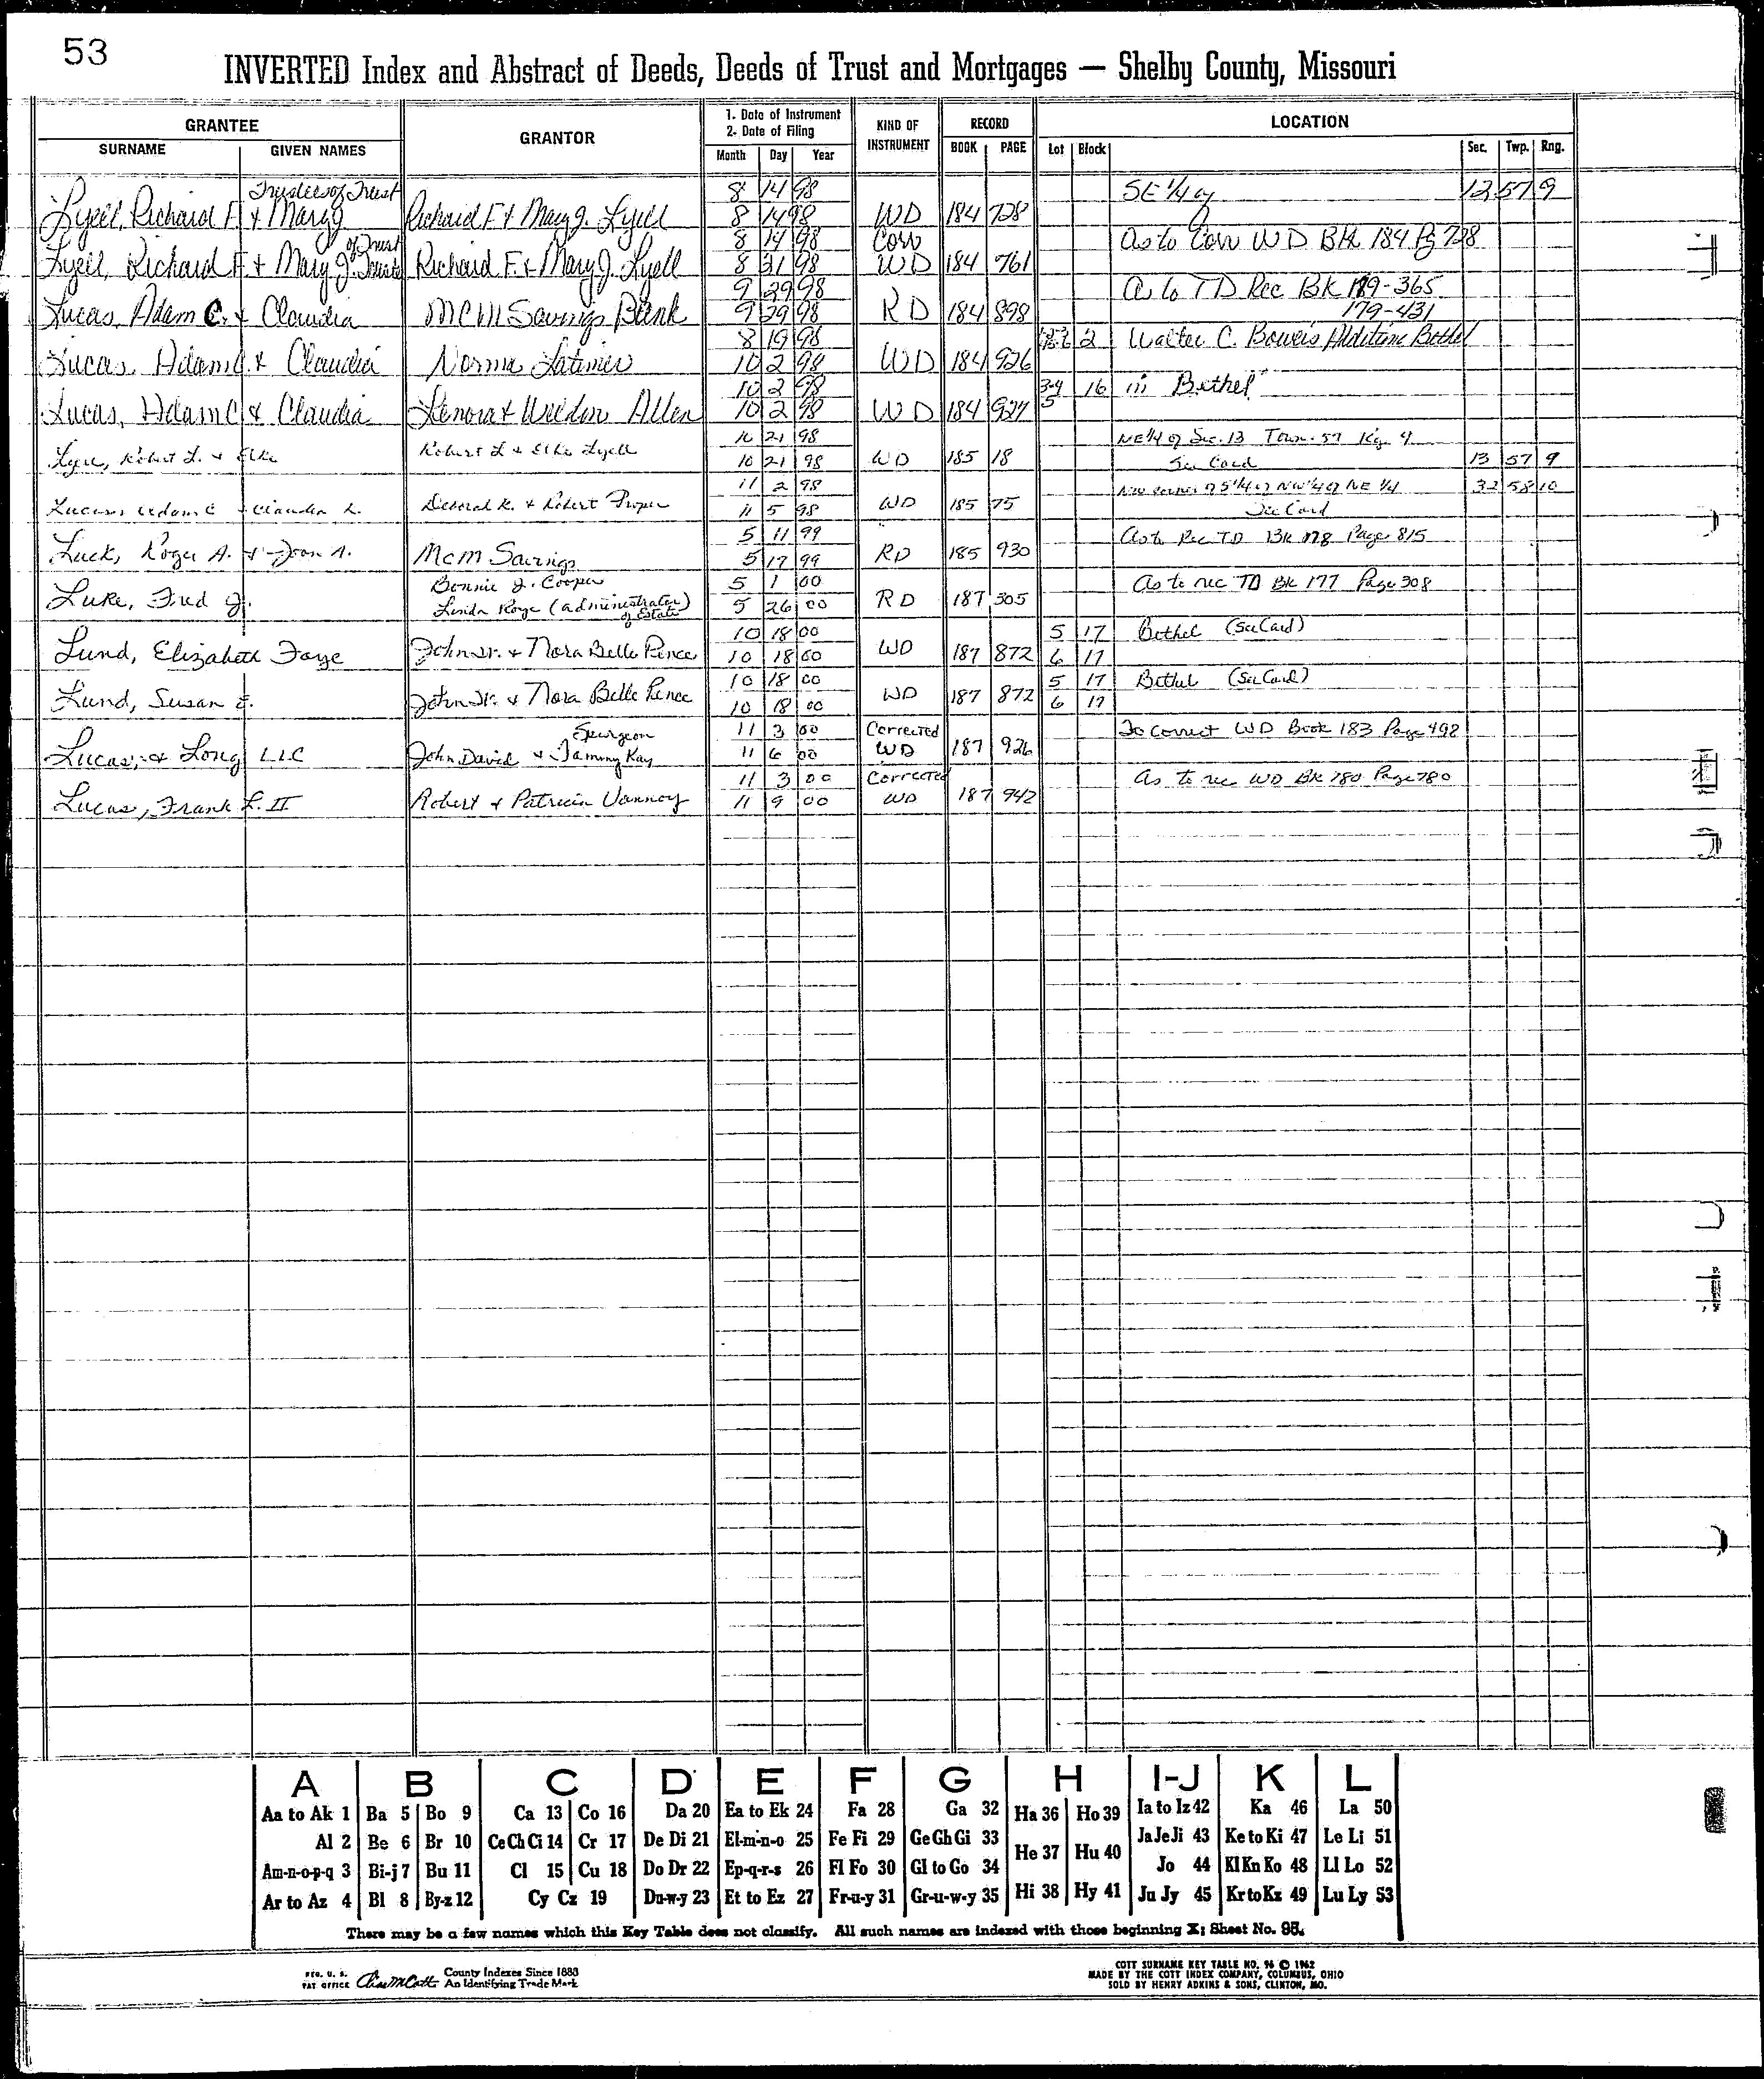 53
INVERTED Index and Abstract of Deeds, Deeds of Trust and Mortgages — Shelby County, Missouri
GRANTEE GRANTOR 1. Date of Instrument 2. Date of Filing KIND OF INSTRUMENT RECORD LOCATION
SURNAME GIVEN NAMES Month Day Year BOOK PAGE Lot Block Sec. Twp. Rng.
Trustees of Trust 8 14 98 SE 1/4 of 12 57 9
Lyell, Richard F. & Mary J Richard F & Mary J. Lyell 8 14 98 WD 184 728
of Trust 8 14 98 Corr As to Corr WD Bk 184 Pg 728
Lyell, Richard F. & Mary J. Richard F. & Mary J. Lyell 8 31 98 WD 184 761
9 29 98 As to TD Rec BK 179-365
Lucas, Adam C. & Claudia MCM Savings Bank 9 29 98 RD 184 898 179-431
8 19 98 2 Walter C. Bower's Addition Bethel
Lucas, Adam C & Claudia Norma Latimer 10 2 98 WD 184 926
10 2 98 3-4 16 in Bethel
Lucas, Adam C & Claudia Lenora & Weldon Allen 10 2 98 WD 184 927 5
10 21 98 NE 1/4 of Sec. 13 Town. 57 Rg 9
Robert L. & Elke Robert L & Elke Lyell 10 21 98 WD 185 18 See Card 13 57 9
11 2 98 NW corner of NW 1/4 of NE 1/4 32 58 10
Lucas, Adam C & Claudia L. & Robert 11 5 98 WD 185 75 See Card
5 11 99 As to Rec TD Bk 178 Page 815
Luck, Roger A. & Joan A. MCM Savings 5 17 99 RD 185 930
Bonnie J. Cooper 5 1 00 As to rec TD Bk 177 Page 308
Luke, Fred J. Linda Kaye (administrator) of Estate 5 26 00 RD 187 305
10 18 00 5 17 Bethel (See Card)
Lund, Elizabeth Faye John Jr. & Nora Belle Pence 10 18 00 WD 187 872 6 17
10 18 00 5 17 Bethel (See Card)
Lund, Susan E. John Jr. & Nora Belle Pence 10 18 00 WD 187 872 6 17
Spurgeon 11 3 00 Corrected To Correct WD Book 183 Page 492
Lucas, & Long LLC John David & Tammy Kay 11 6 00 WD 187 926
11 3 00 Corrected As to rec WD BK 180 Page 780
Lucas, Frank L. II Robert & Patricia Vannoy 11 9 00 WD 187 942
A B C D E F G H I-J K L
Aa to Ak 1 Ba 5 Bo 9 Ca 13 Co 16 Da 20 Ea to Ek 24 Fa 28 Ga 32 Ha 36 Ho 39 Ia to Iz 42 Ka 46 La 50
Al 2 Be 6 Br 10 Ce Ch Ci 14 Cr 17 De Di 21 El-m-n-o 25 Fe Fi 29 Ge Gh Gi 33 He 37 Hu 40 Ja Je Ji 43 Ke to Ki 47 Le Li 51
Am-n-o-p-q 3 Bi-j 7 Bu 11 Cl 15 Cu 18 Do Dr 22 Ep-q-r-s 26 Fl Fo 30 Gl to Go 34 Jo 44 Kl Kn Ko 48 Ll Lo 52
Ar to Az 4 Bl 8 By-z 12 Cy Cz 19 Du-w-y 23 Et to Ez 27 Fr-u-y 31 Gr-u-w-y 35 Hi 38 Hy 41 Ju Jy 45 Kr to Kz 49 Lu Ly 53
There may be a few names which this Key Table does not classify. All such names are indexed with those beginning X; Sheet No. 95.
REG. U. S. PAT OFFICE County Indexes Since 1888 An Identifying Trade Mark
COTT SURNAME KEY TABLE NO. 96 © 1962
MADE BY THE COTT INDEX COMPANY, COLUMBUS, OHIO
SOLD BY HENRY ADKINS & SONS, CLINTON, MO.